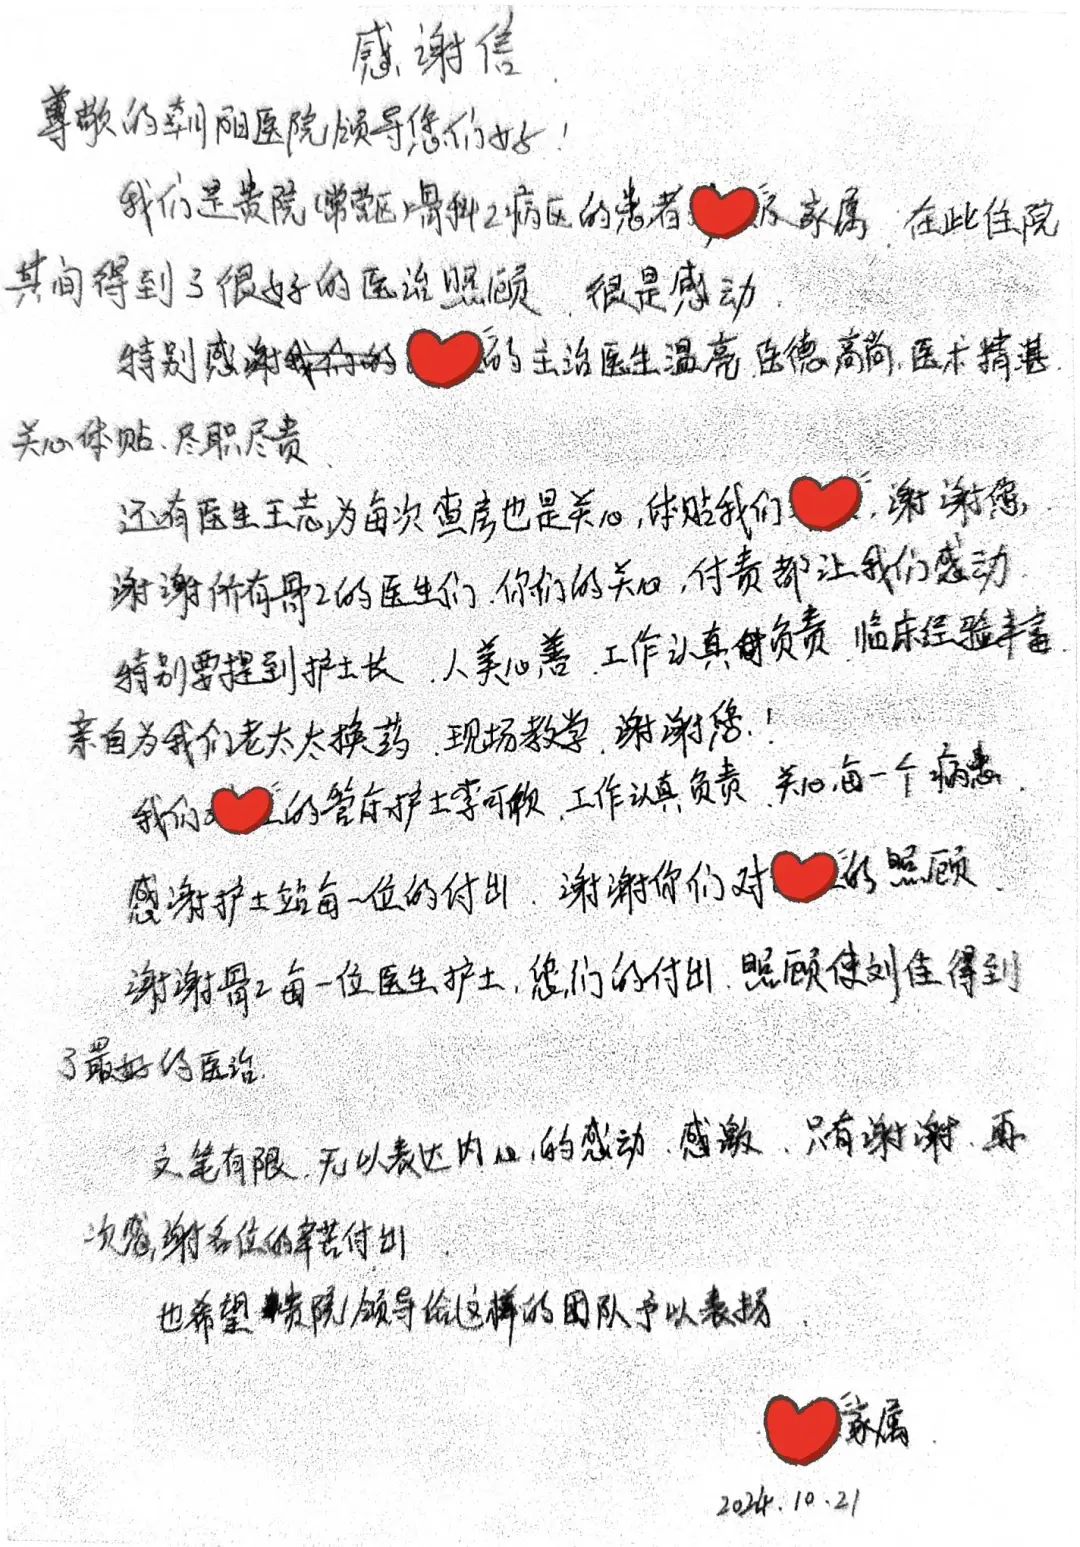 感谢信
尊敬的朝阳医院领导您们好!
我们是贵院(常营区)骨科2病区的患者 家属 在此住院
其间得到了很好的医治照顾 很是感动
特别感谢 的主治医生温亮 医德高尚,医术精湛
关心体贴、尽职尽责
还有医生王志为每次查房也是关心,体贴我们 谢谢您,
谢谢所有骨2的医生们、你们的关心,付责都让我们感动
特别要提到护士长 人美心善 工作认真 负责 临床经验丰富
亲自为我们老太太换药 现场教学 谢谢您!
我们 的管床护士李可欣 工作认真负责 关心每一个病患
感谢护士站每一位的付出 谢谢你们对 的照顾
谢谢骨2每一位医生护士,您们的付出、照顾使刘佳得到
了最好的医治
文笔有限、无以表达内心的感动、感激、只有谢谢、再
次感谢各位的辛苦付出
也希望贵院领导给这样的团队予以表扬
家属
2024.10.21